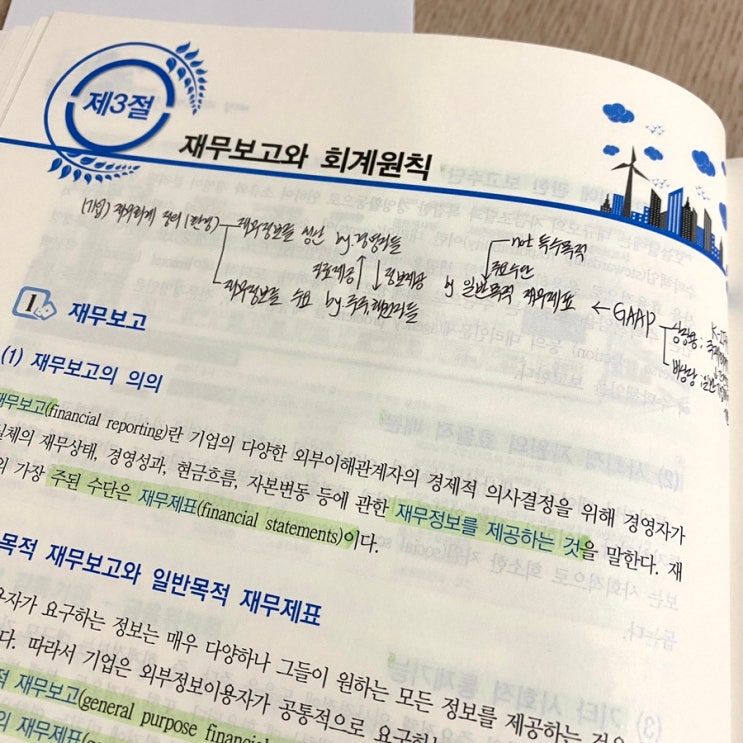 제3절
재무보고와 회계원칙
재무정보를 생산 by.경영자들
not 특수목적
주요수단
자료제공
정보제공
by 일반목적 재무제표 ← GAAP
상장용;
재무정보를 수요 by
비상장:일반
I 재무보고
(1) 재무보고의 의의
재무보고(financial reporting)란 기업의 다양한 외부이해관계자의 경제적 의사결정을 위해 경영자가
실체의 재무상태, 경영성과, 현금흐름, 자본변동 등에 관한 재무정보를 제공하는 것을 말한다. 재
의 가장 주된 수단은 재무제표(financial statements)이다.
목적 재무보고와 일반목적 재무제표
용자가 요구하는 정보는 매우 다양하나 그들이 원하는 모든 정보를 제공하는 것은
다. 따라서 기업은 외부정보이용자가 공통적으로 요구하는
적 재무보고(general purpose financial
의 재무제표